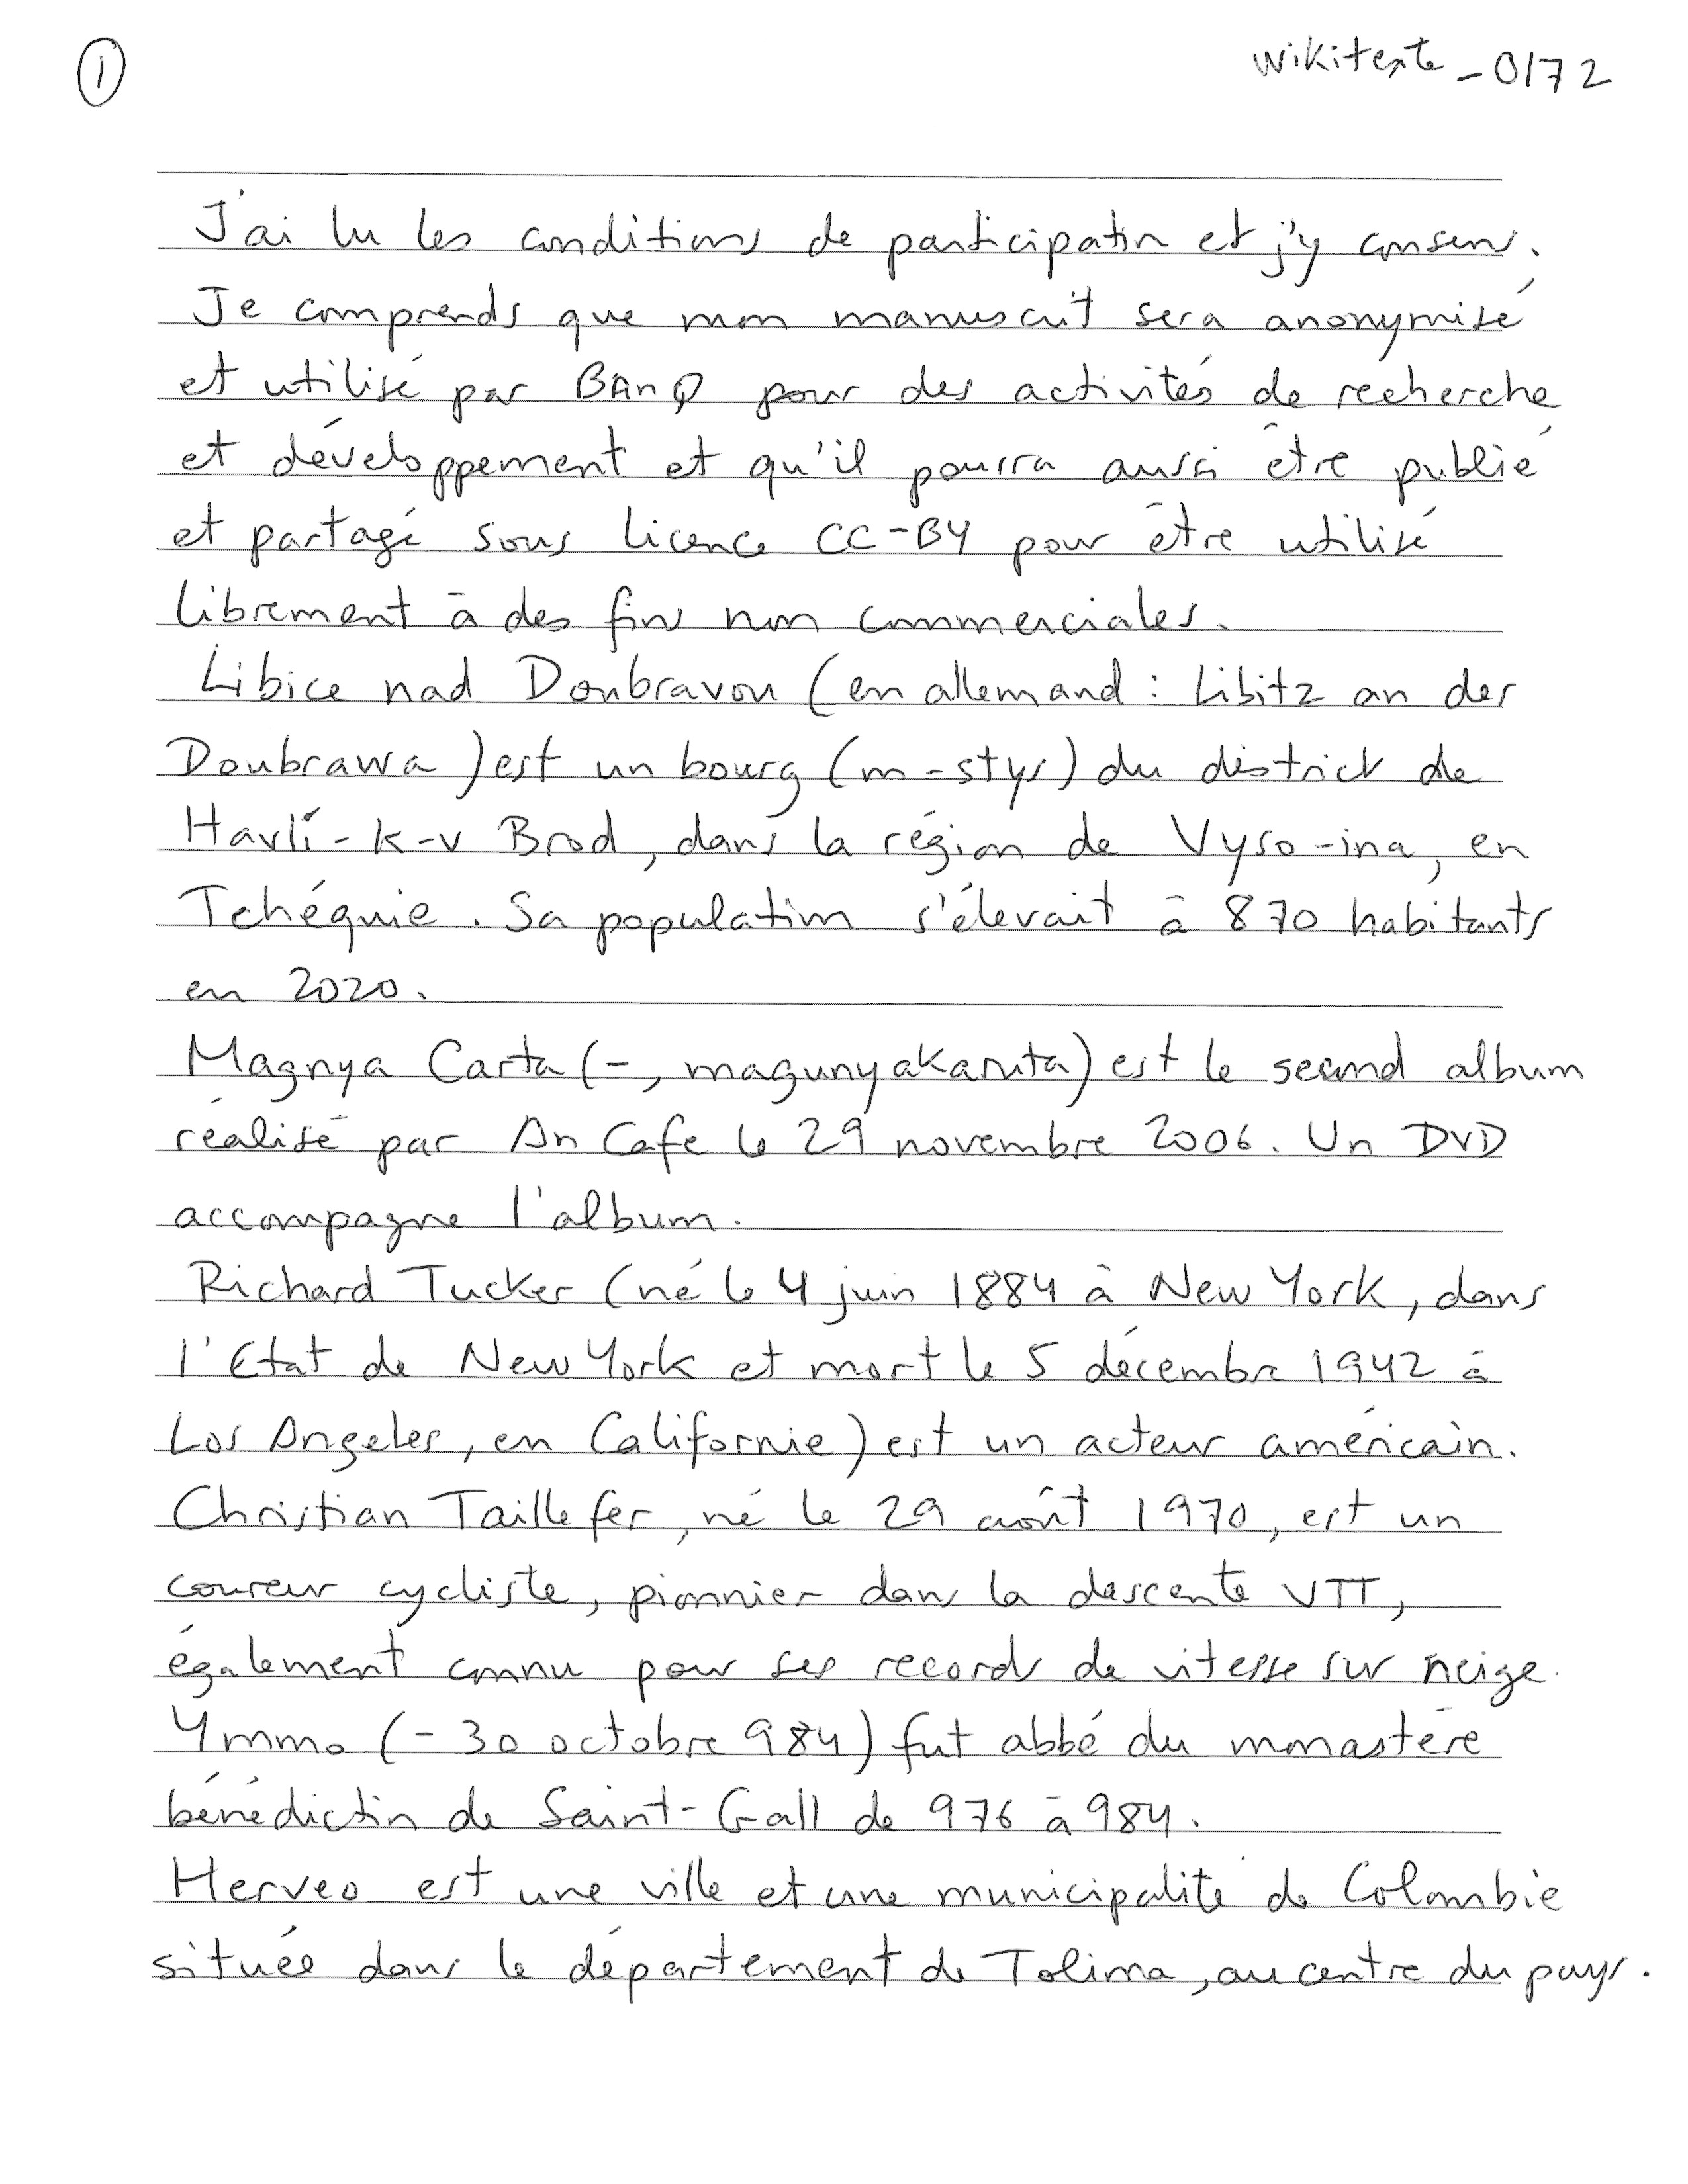 1
Wikitexte_0172
J'ai lu les conditions de participation et j'y consens.
Je comprends que mon manuscrit sera anonymisé
et utilisé par BAnQ pour des activités de recherche
et développement et qu'il pourra aussi être publié
et partagé sous licence CC-BY pour être utilisé
librement à des fins non commerciales.
Libice nad Doubravou (en allemand : Libitz an der
Doubrawa) est un bourg (m-stys) du district de
Havlí-k-v Brod, dans la région de Vyso-ina, en
Tchéquie. Sa population s'élevait à 870 habitants
en 2020.
Magnya Carta (-, magunyakaruta) est le second album
réalisé par An Cafe le 29 novembre 2006. Un DVD
accompagne l'album.
Richard Tucker (né le 4 juin 1884 à New York, dans
l'Etat de New York et mort le 5 décembre 1942 à
Los Angeles, en Californie) est un acteur américain.
Christian Taillefer, né le 29 août 1970, est un
coureur cycliste, pionnier dans la descente VTT,
également connu pour ses records de vitesse sur neige.
Ymmo (- 30 octobre 984) fut abbé du monastère
bénédictin de Saint-Gall de 976 à 984.
Herveo est une ville et une municipalité de Colombie
située dans le département de Tolima, au centre du pays.